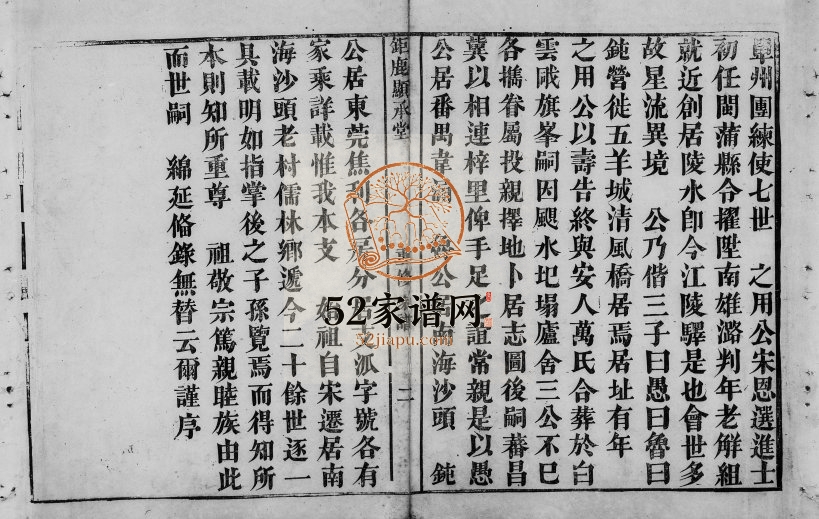 單州團練使七世 之用公宋恩選進士
初任閩蒲縣令擢陞南雄潞判年老解組
就近創居陵水卽今江陵驛是也會世多
故星流異境 公乃偕三子曰愚曰魯曰
鈍營徙五羊城清風橋居焉居址有年
之用公以壽告終與安人萬氏合葬於白
雲戙旗峯嗣因颶水圮塌廬舍三公不已
各攜眷屬投親擇地卜居志圖後嗣蕃昌
冀以相連梓里俾手足之誼常親是以愚
公居番禺韋涌 公 海沙頭 鈍
鉅鹿顯承堂
二
公居東莞焦利各 分 支派字號各有
家乘詳載惟我本支 始祖自宋遷居南
海沙頭老村儒林鄉遞今二十餘世逐一
具載明如指掌後之子孫覽焉而得知所
本則知所重尊 祖敬宗篤親睦族由此
而世嗣 綿延脩錄無替云爾謹序
52家谱网
52jiapu.com